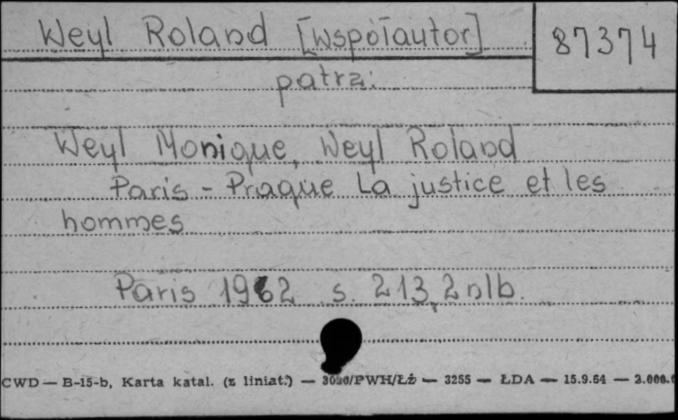 Weyl Roland [współautor]
87374
patrz:
Weyl Monique, Weyl Roland
Paris - Prague La justice et les
hommes
Paris 1962 s. 213, 2 nlb.
CWD — B-15-b, Karta katal. (z liniat.) — /PWH/Łż — 3255 — ŁDA — 15.9.64 —